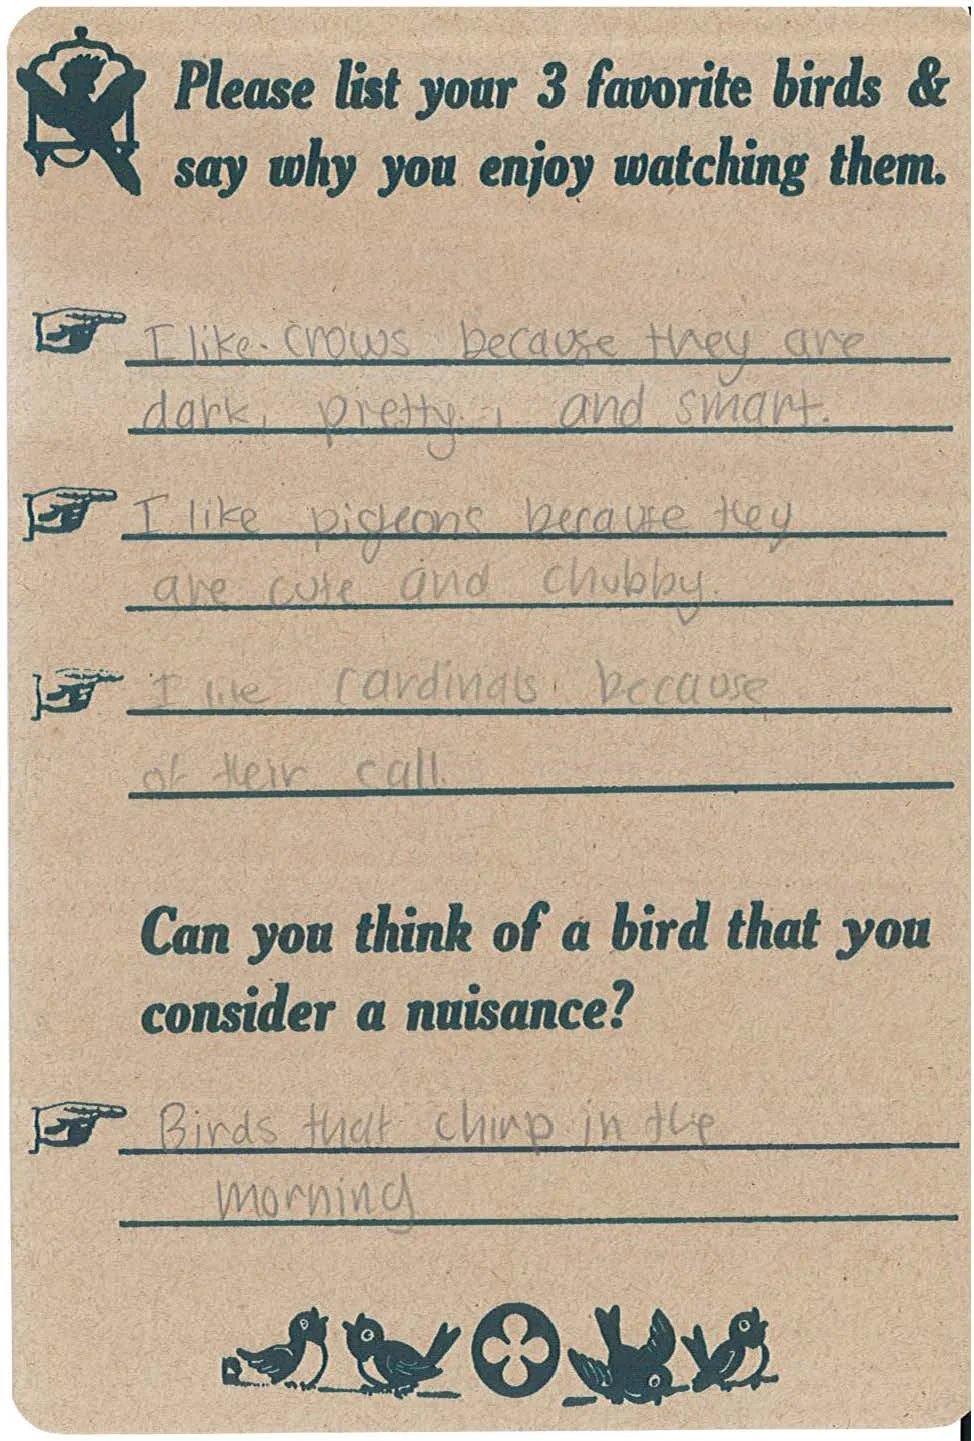 Please list your 3 favorite birds &
say why you enjoy watching them.
I like crows because they are
dark, pretty, and smart.
I like pigeons because they
are cute and chubby.
I like cardinals because
of their call.
Can you think of a bird that you
consider a nuisance?
Birds that chirp in the
morning